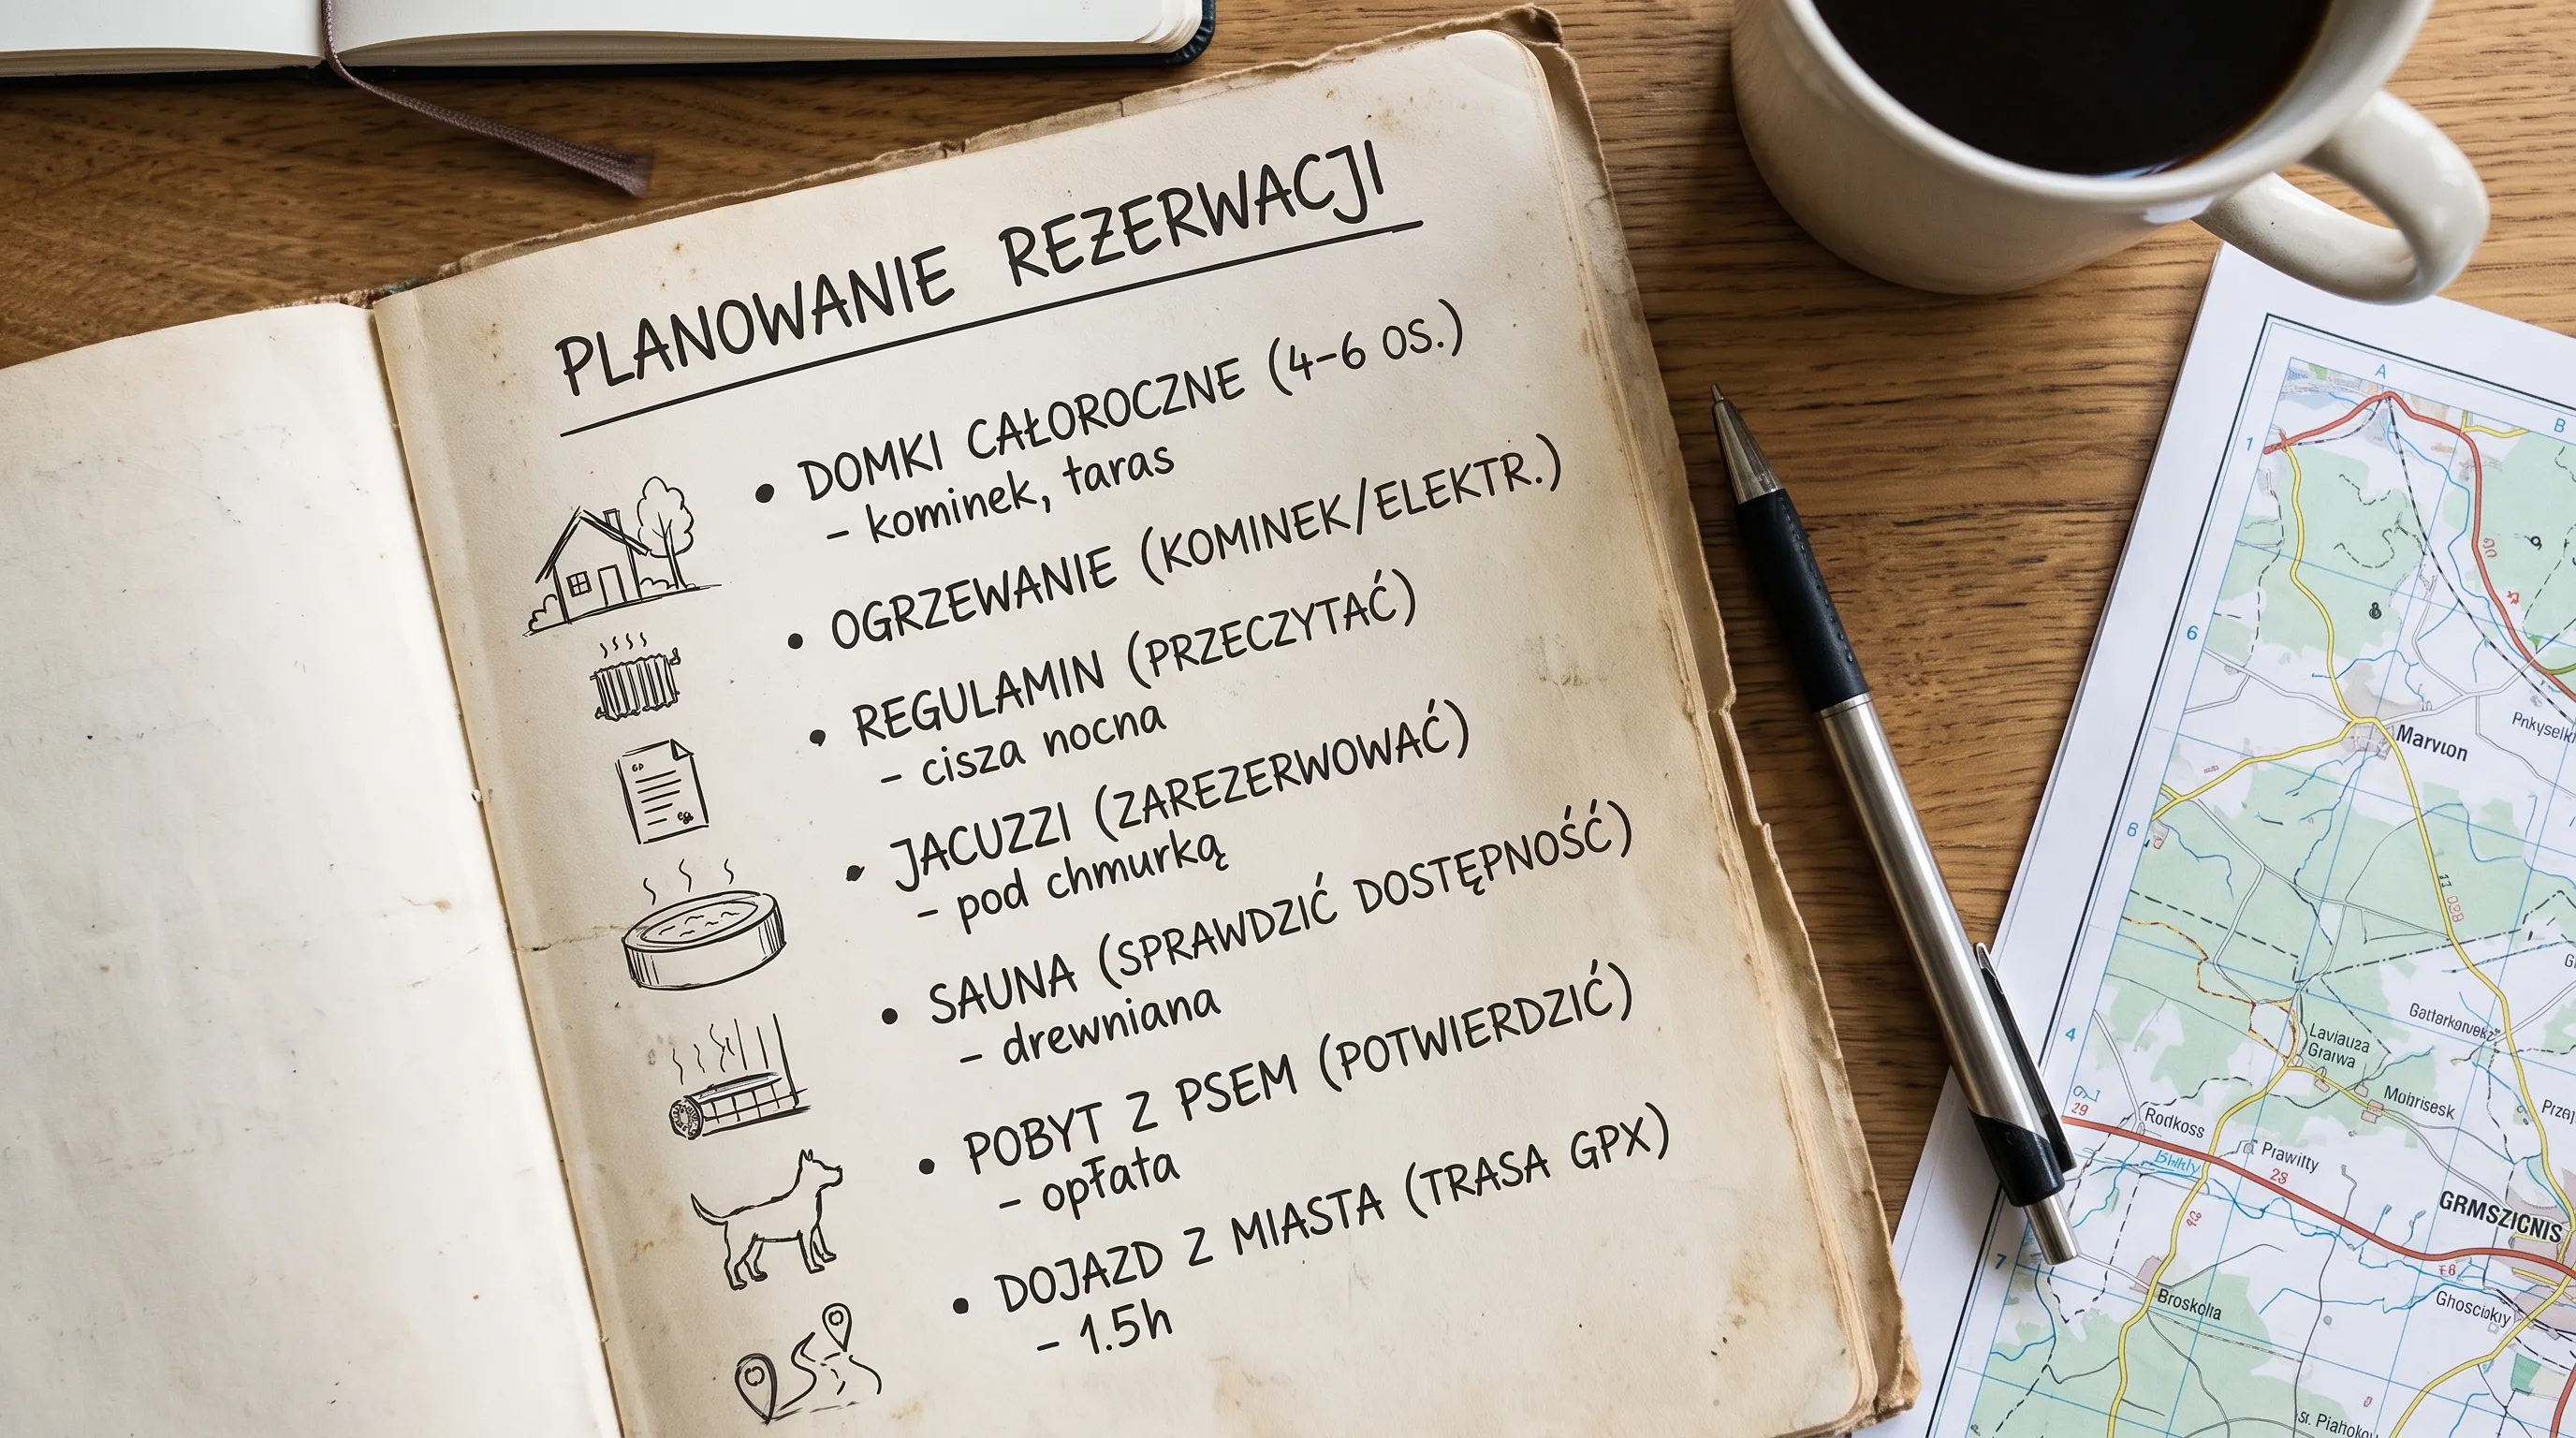 PLANOWANIE REZERWACJI
• DOMKI CAŁOROCZNE (4-6 OS.)
– kominek, taras
• OGRZEWANIE (KOMINEK/ELEKTR.)
• REGULAMIN (PRZECZYTAĆ)
– cisza nocna
• JACUZZI (ZAREZERWOWAĆ)
– pod chmurką
• SAUNA (SPRAWDZIĆ DOSTĘPNOŚĆ)
– drewniana
• POBYT Z PSEM (POTWIERDZIĆ)
– opłata
• DOJAZD Z MIASTA (TRASA GPX)
– 1.5h
A
B
1
6
Marvon
6
4
29
Rodkoss
Prawilty
28
Mobrisesk
GRMSZICNIS
7
E6
Broskolla